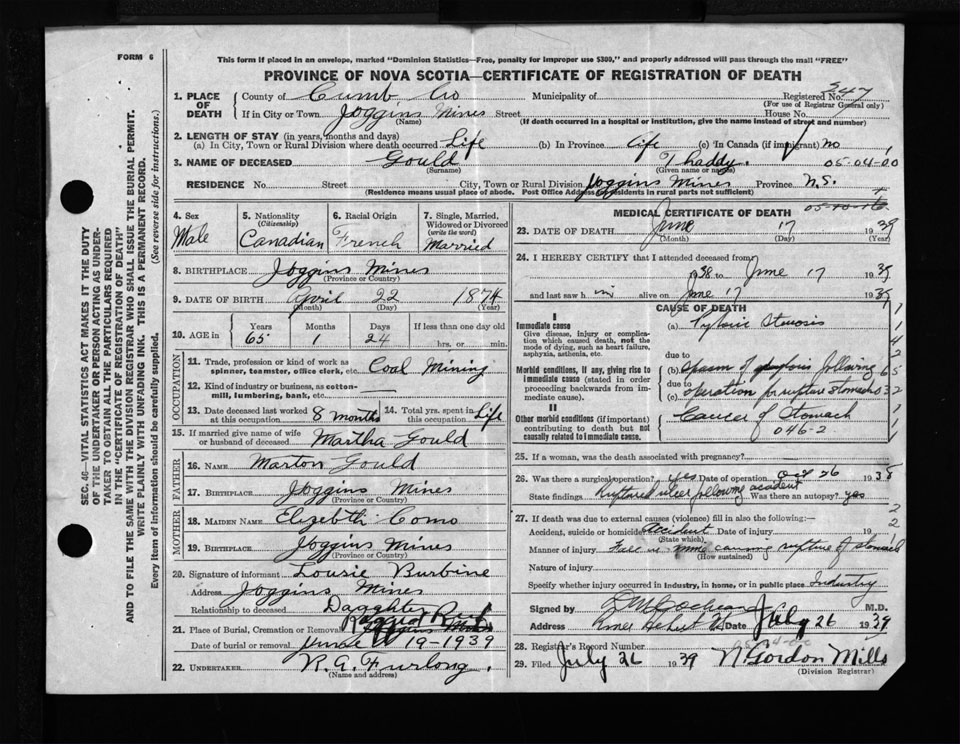 FORM 6
This form if placed in an envelope, marked "Dominion Statistics—Free, penalty for improper use $300," and properly addressed will pass through the mail "FREE"
PROVINCE OF NOVA SCOTIA—CERTIFICATE OF REGISTRATION OF DEATH
SEC. 46—VITAL STATISTICS ACT MAKES IT THE DUTY
OF THE UNDERTAKER OR PERSON ACTING AS UNDER-
TAKER TO OBTAIN ALL THE PARTICULARS REQUIRED
IN THE "CERTIFICATE OF REGISTRATION OF DEATH"
AND TO FILE THE SAME WITH THE DIVISION REGISTRAR WHO SHALL ISSUE THE BURIAL PERMIT.
WRITE PLAINLY WITH UNFADING INK. THIS IS A PERMANENT RECORD.
Every item of information should be carefully supplied. (See reverse side for instructions.)
1. PLACE OF DEATH County of Cumb. Co Municipality of Registered No. 347
(For use of Registrar General only)
If in City or Town Joggins Mines Street House No.
(Name) (If death occurred in a hospital or institution, give the name instead of street and number)
2. LENGTH OF STAY (in years, months and days)
(a) In City, Town or Rural Division where death occurred Life (b) In Province Life (c) In Canada (if immigrant) no
3. NAME OF DECEASED Gould Thaddy. 05-04-00
(Surname) (Given name or names)
RESIDENCE No. Street City, Town or Rural Division Joggins Mines Province N.S.
(Residence means usual place of abode. Post Office Address of residents in rural parts not sufficient)
4. Sex Male
5. Nationality (Citizenship) Canadian
6. Racial Origin French
7. Single, Married, Widowed or Divorced (write the word) Married
8. BIRTHPLACE Joggins Mines
(Province or Country)
9. DATE OF BIRTH April 22 1874
(Month) (Day) (Year)
10. AGE in Years 65 Months 1 Days 24 If less than one day old hrs. or min.
OCCUPATION
11. Trade, profession or kind of work as spinner, teamster, office clerk, etc. Coal Mining
12. Kind of industry or business, as cotton-mill, lumbering, bank, etc.
13. Date deceased last worked at this occupation 8 months 14. Total yrs. spent in this occupation Life
15. If married give name of wife or husband of deceased Martha Gould
FATHER
16. NAME Marton Gould
17. BIRTHPLACE Joggins Mines
(Province or Country)
MOTHER
18. MAIDEN NAME Elizebth Como
19. BIRTHPLACE Joggins Mines
(Province or Country)
20. Signature of informant Lousie Burbine
Address Joggins Mines
Relationship to deceased Daughter
21. Place of Burial, Cremation or Removal
Date of burial or removal June 19-1939
22. UNDERTAKER R. A. Furlong.
(Name and address)
MEDICAL CERTIFICATE OF DEATH
23. DATE OF DEATH June 17 1939
(Month) (Day) (Year)
24. I HEREBY CERTIFY that I attended deceased from
1938 to June 17 1939
and last saw him alive on June 17 1939
CAUSE OF DEATH
I
Immediate cause
Give disease, injury or complication which caused death, not the mode of dying, such as heart failure, asphyxia, asthenia, etc.
(a) Pyloric Stenosis
due to
Morbid conditions, if any, giving rise to immediate cause (stated in order proceeding backwards from immediate cause).
(b) Spasm of following
due to
(c) operation for rupture stomach
II
Other morbid conditions (if important) contributing to death but not causally related to immediate cause.
Cancer of Stomach
046-2
25. If a woman, was the death associated with pregnancy?
26. Was there a surgical operation? yes Date of operation Oct 26 1938
State findings Ruptured ulcer following accident Was there an autopsy? yes
27. If death was due to external causes (violence) fill in also the following:—
Accident, suicide or homicide? Accident Date of injury 19
(State which)
Manner of injury Fall in mine causing rupture of stomach
(How sustained)
Nature of injury
Specify whether injury occurred in industry, in home, or in public place Industry
Signed by M.D.
Address River Hebert Date July 26 1939
28. Registrar's Record Number
29. Filed July 26 1939 N Gordon Mills
(Division Registrar)